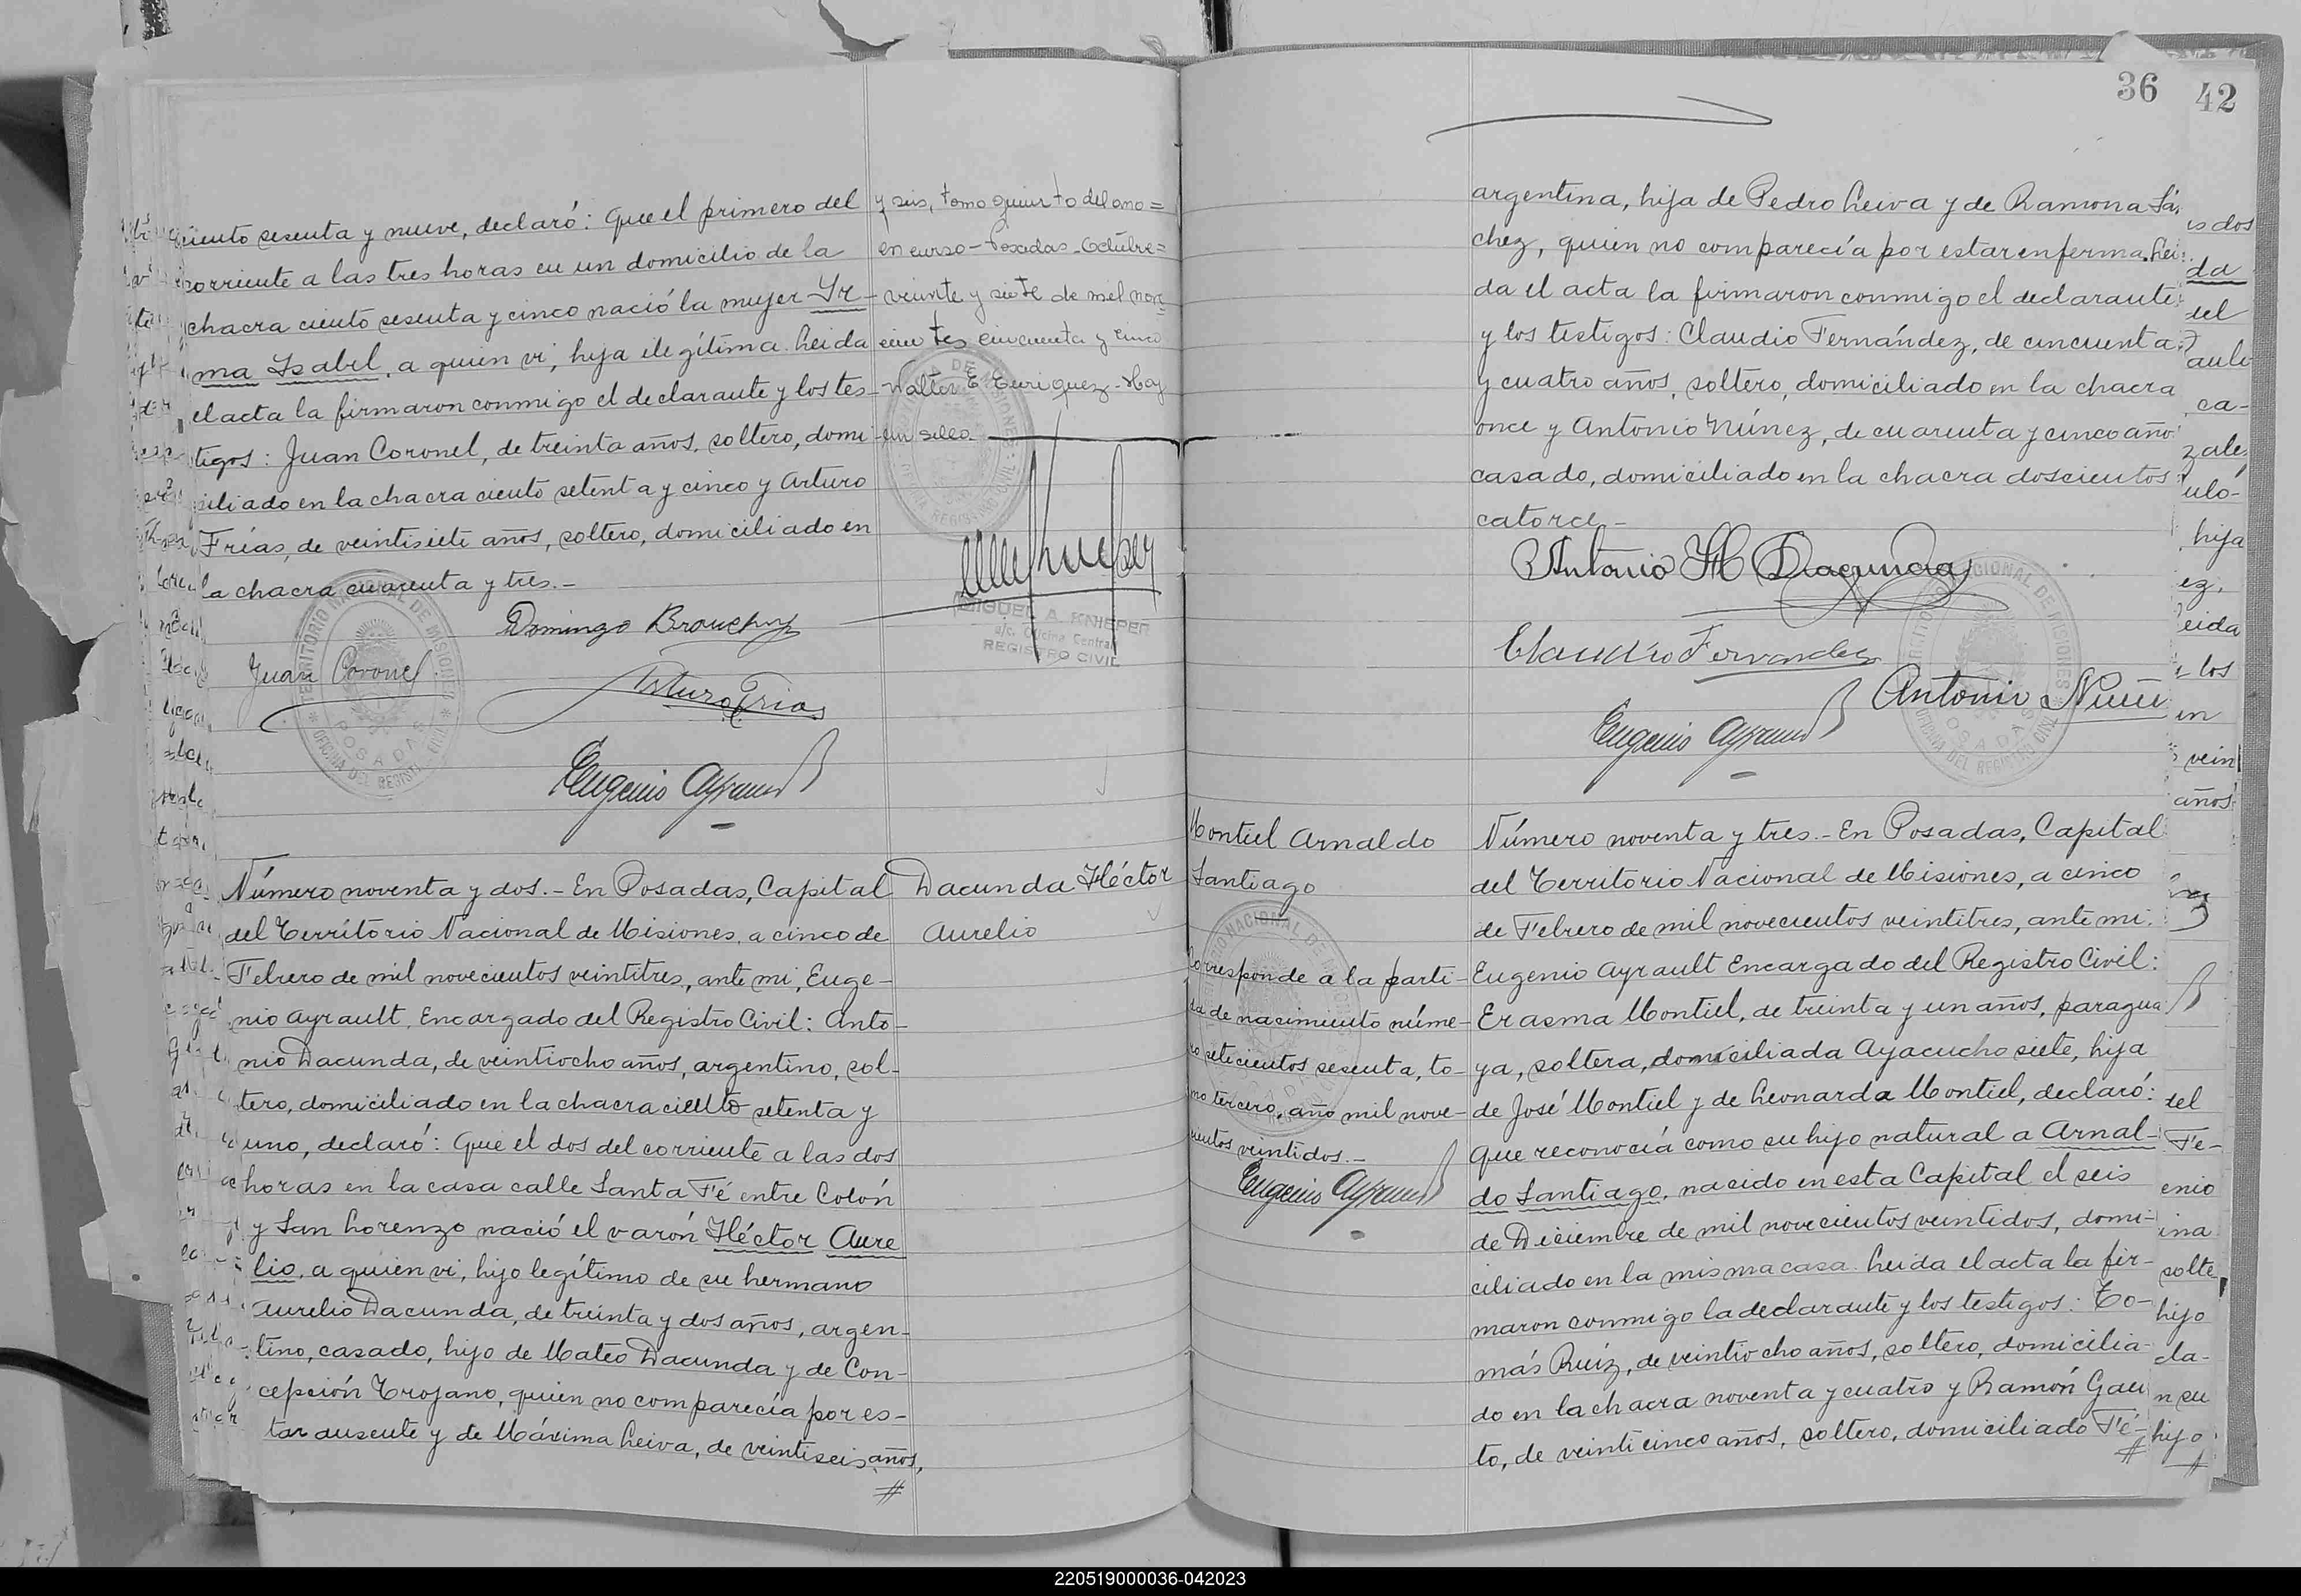 ciento sesenta y nueve, declaró: Que el primero del
corriente a las tres horas en un domicilio de la
chacra ciento sesenta y cinco nació la mujer Yr-
ma Isabel, a quien vi, hija ilegítima. Leida
el acta la firmaron conmigo el declarante y los tes-
tigos: Juan Coronel, de treinta años, soltero, domi-
ciliado en la chacra ciento setenta y cinco y Arturo
Frías, de veintisiete años, soltero, domiciliado en
la chacra cuarenta y tres.-
Domingo
Juan Coronel
Arturo Frias
Eugenio Ayrault
TERRITORIO NACIONAL DE MISIONES
POSADAS
OFICINA DEL REGISTRO CIVIL
y seis, tomo quinto del ano=
en curso- Posadas-Octubre=
veinte y siete de mel nove
cientos cincuenta y cinco
-Walter E Enriquez-Hay
un sello.
MIGUEL A. KNIEPER
a/c. Oficina Central
REGISTRO CIVIL
Número noventa y dos.- En Posadas, Capital
del Território Nacional de Misiones, a cinco de
Febrero de mil novecientos veintitres, ante mi, Euge-
nio Ayrault, Encargado del Registro Civil: Anto-
nio Dacunda, de veintiocho años, argentino, sol-
tero, domiciliado en la chacra ciento setenta y
uno, declaró: Que el dos del corriente a las dos
horas en la casa calle Santa Fé entre Colón
y San Lorenzo nació el varón Héctor Aure
lio, a quien vi, hijo legítimo de su hermano
Aurelio Dacunda, de treinta y dos años, argen-
tino, casado, hijo de Mateo Dacunda y de Con-
cepción Trojano, quien no comparecía por es-
tar ausente y de Máxima Leiva, de veintiseis años,
#
Dacunda Héctor
Aurelio
36
42
argentina, hija de Pedro Leiva y de Ramona Sán
chez, quien no comparecía por estar enferma. Lei
da el acta la firmaron conmigo el declarante
y los testigos: Claudio Fernández, de cincuenta
y cuatro años, soltero, domiciliado en la chacra
once y Antonio Núnez, de cuarenta y cinco año
casado, domiciliado en la chacra doscientos
catorce.-
Antonio H Dacunda
Claudio Fernandez
Antonio Nuñe
Eugenio Ayrault
TERRITORIO NACIONAL DE MISIONES
POSADAS
OFICINA DEL REGISTRO CIVIL
Montiel Arnaldo
Santiago
Corresponde a la parti-
da de nacimiento núme-
ro setecientos sesenta, to-
mo tercero, año mil nove-
cientos veintidos.-
Eugenio Ayrault
Número noventa y tres.- En Posadas, Capital
del Territorio Nacional de Misiones, a cinco
de Febrero de mil novecientos veintitres, ante mi.
Eugenio Ayrault Encargado del Registro Civil:
Erasma Montiel, de treinta y un años, paragua
ya, soltera, domiciliada Ayacucho siete, hija
de José Montiel y de Leonarda Montiel, declaró:
Que reconocía como su hijo natural a Arnal-
do Santiago, nacido en esta Capital el seis
de Diciembre de mil novecientos veintidos, domi-
ciliado en la misma casa. Leida el acta la fir-
maron conmigo la declarante y los testigos: To-
más Ruíz, de veintiocho años, soltero, domicilia-
do en la chacra noventa y cuatro y Ramón Gau
to, de veinticinco años, soltero, domiciliado Fé-
#
220519000036-042023